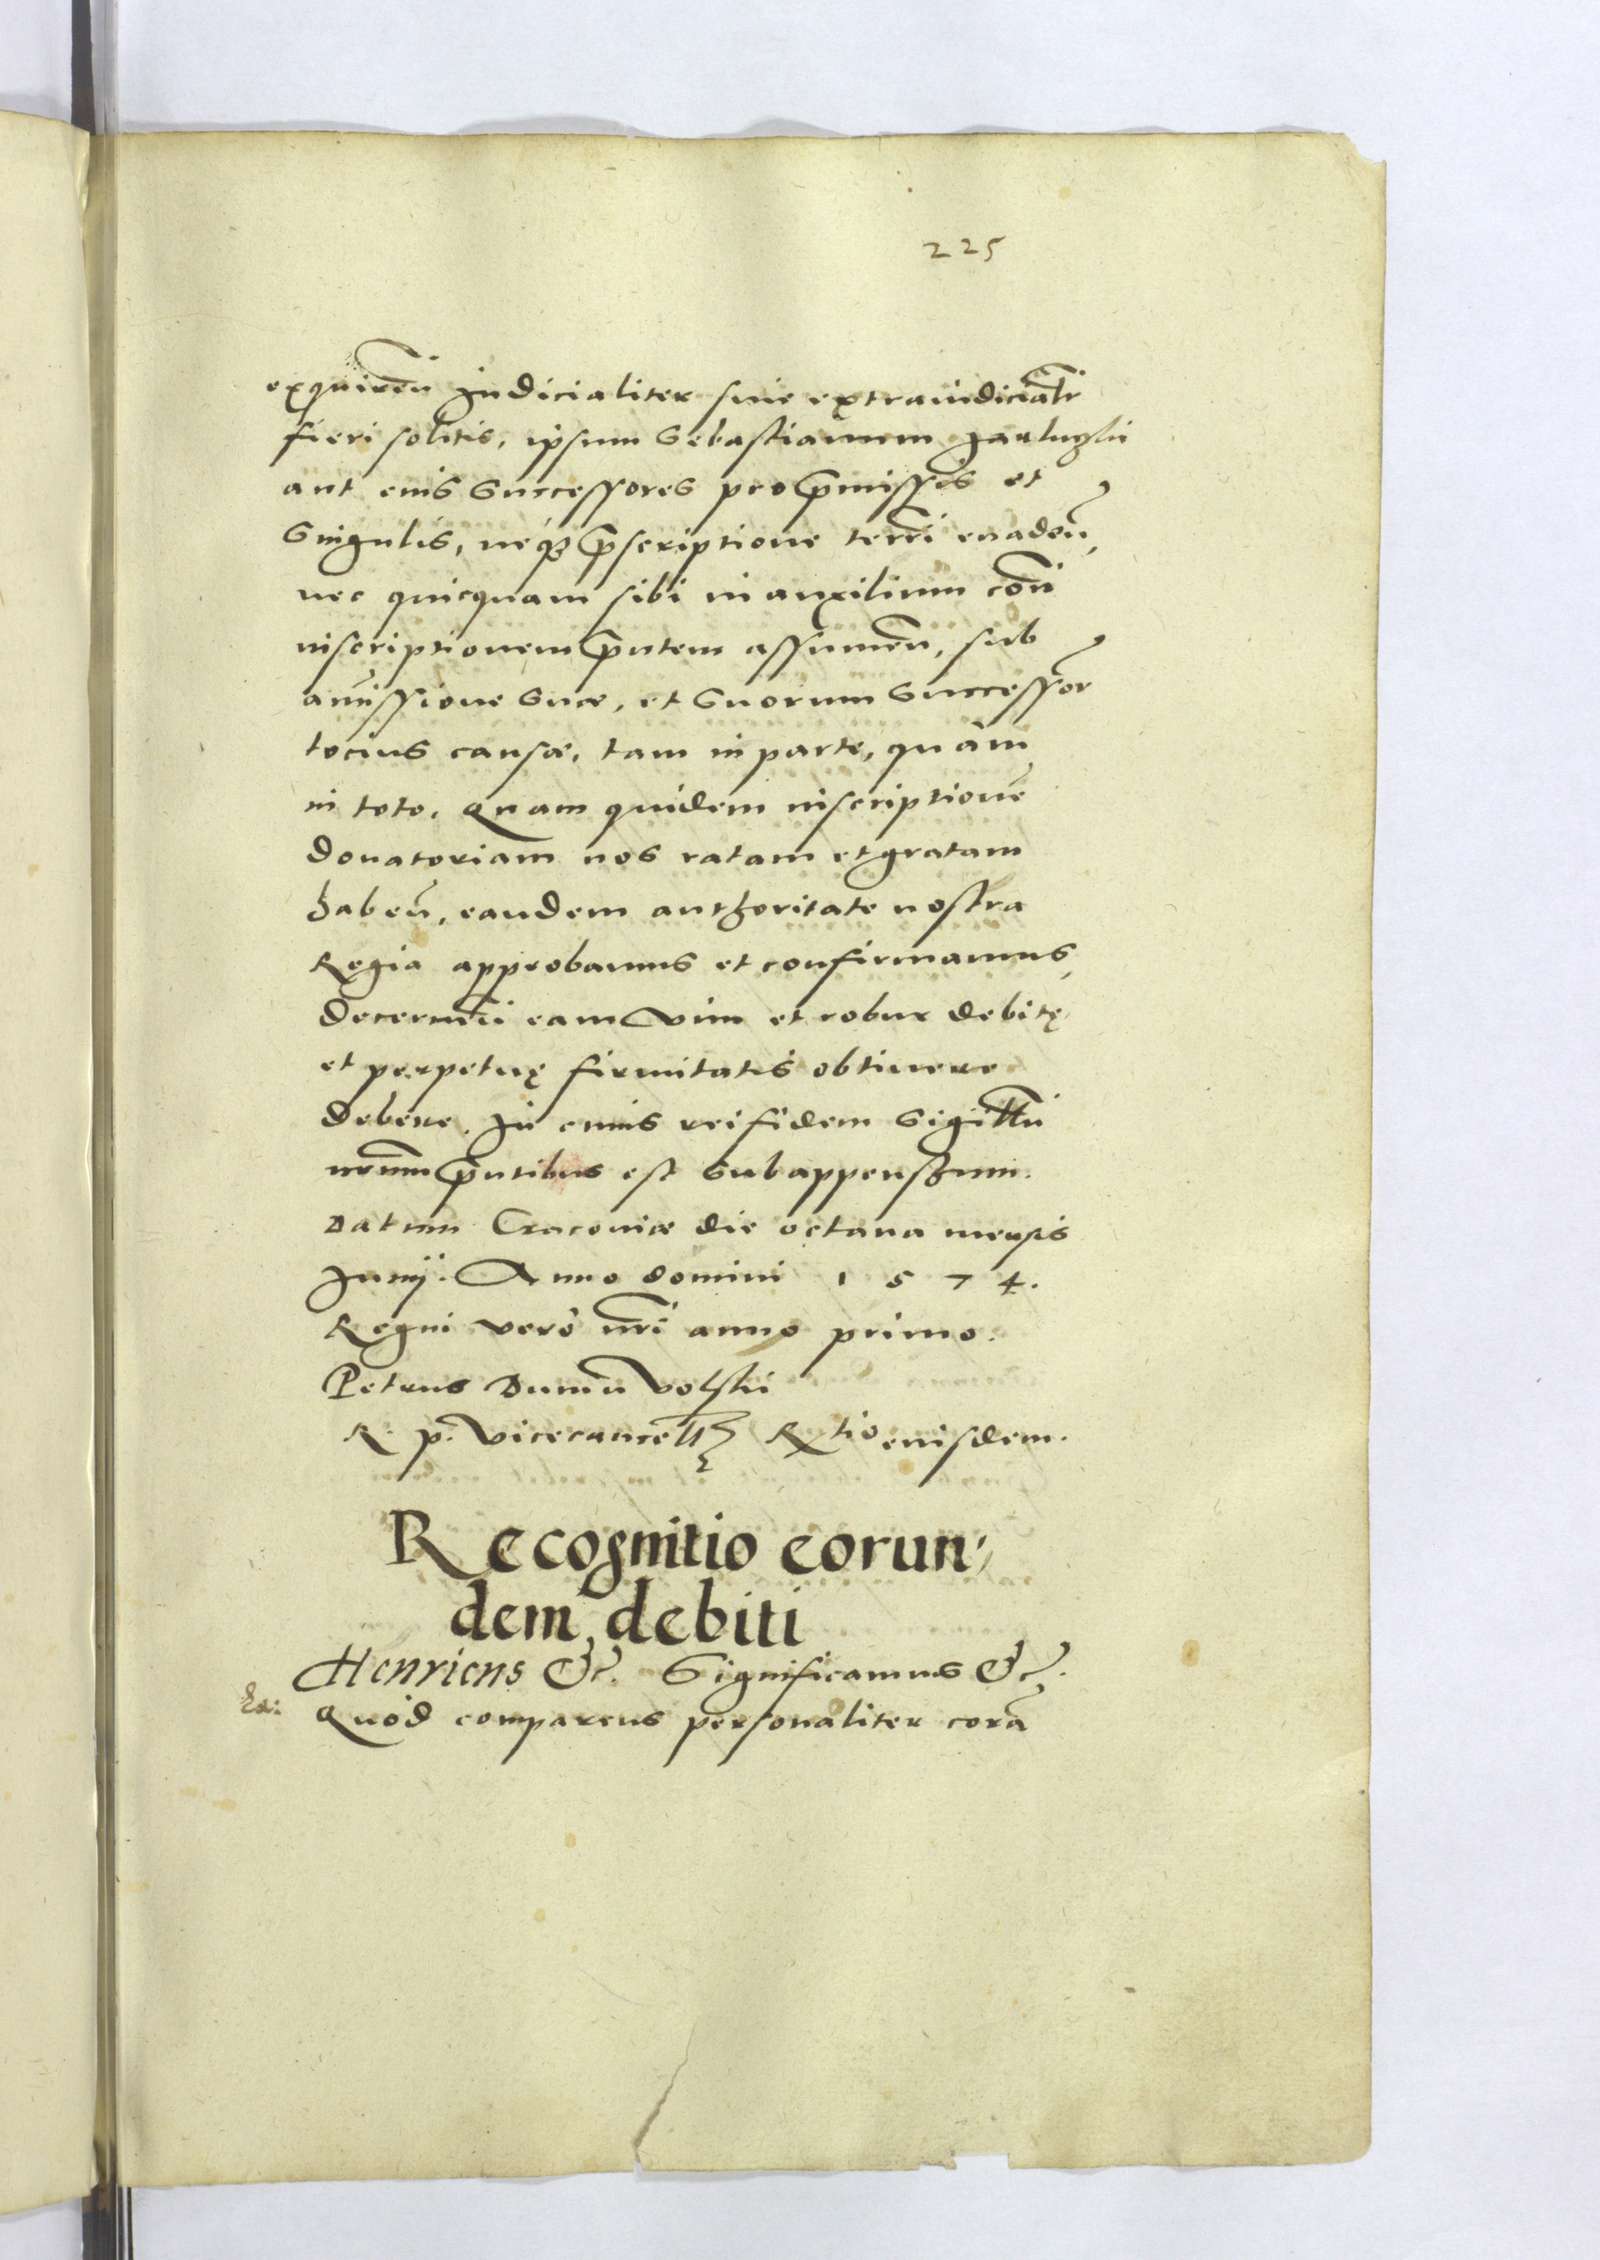 225
exquireñ Judicialiter siue extraiudicialr̃
fieri solitis, ipsum Sebastianum Jarlutzki
aut eius Successores pro p̃missis et
Singulis, neq3 p̃scriptione terri euadeñ,
nec quicquam sibi in auxilium coñ
inscriptionem p̃ntem assumeñ, sub
amissione Suæ, et Suorum Successor̃
tocius causæ, tam in parte, quàm
in toto. Quam quidem inscriptionẽ
donatoriam nos ratam et gratam
habeñ, eandem authoritate nostra
Regia approbamus et confirmamus,
Decerneñ eam vim et robur debitę
et perpetuę firmitatis obtinere
debere. In cuius rei fidem Sigillũ
nr̃um p̃ntibus est Subappensum.
Datum Cracoviæ die octaua mensis
Junij. Anno domini 1574.
Regni verò nr̃i anno primo.
Petrus Dunin Volski
R. p. Vicecancell⁊ Rtio eiusdem.
Recognitio eorun,
dem debiti
Henricus &c. Significamus &c.
Quòd comparens personaliter corã